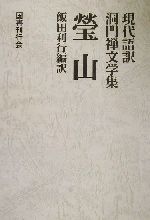 現代語訳
洞門禅文学集
瑩山
飯田利行編訳
国書刊行会